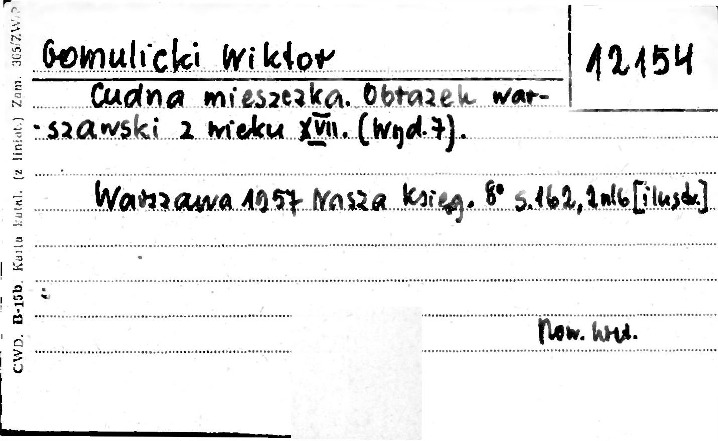 Gomulicki Wiktor
12154
Cudna mieszczka. Obrazek war-
szawski z wieku XVII. (Wyd. 7).
Warszawa 1957 Nasza Księg. 8° s. 162, 2 nlb [ilustr.]
Now.
CWD. B-15b. Karta katal. (z liniat.) Zam. 305/ZW/P